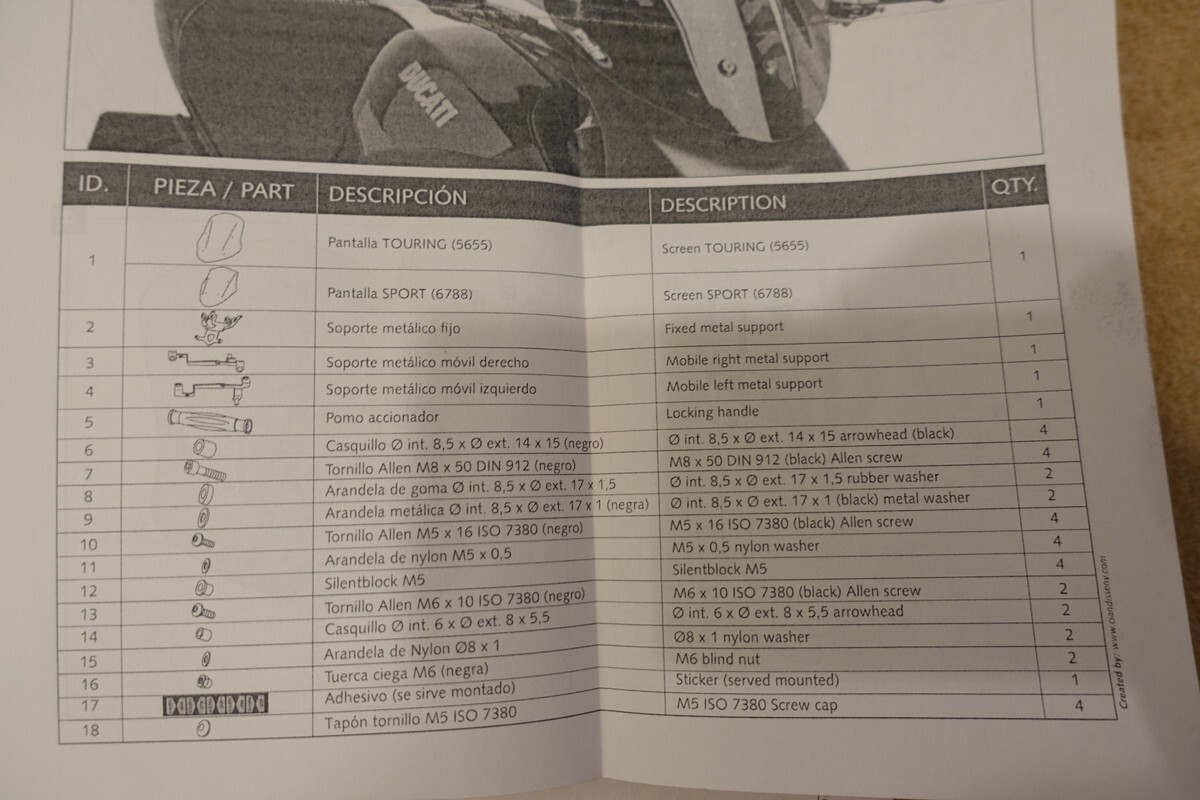 DUCATI
ID. PIEZA / PART DESCRIPCIÓN DESCRIPTION QTY.
1 Pantalla TOURING (5655) Screen TOURING (5655) 1
Pantalla SPORT (6788) Screen SPORT (6788)
2 Soporte metálico fijo Fixed metal support 1
3 Soporte metálico móvil derecho Mobile right metal support 1
4 Soporte metálico móvil izquierdo Mobile left metal support 1
5 Pomo accionador Locking handle 1
6 Casquillo Ø int. 8,5 x Ø ext. 14 x 15 (negro) Ø int. 8,5 x Ø ext. 14 x 15 arrowhead (black) 4
7 Tornillo Allen M8 x 50 DIN 912 (negro) M8 x 50 DIN 912 (black) Allen screw 4
8 Arandela de goma Ø int. 8,5 x Ø ext. 17 x 1,5 Ø int. 8,5 x Ø ext. 17 x 1,5 rubber washer 2
9 Arandela metálica Ø int. 8,5 x Ø ext. 17 x 1 (negra) Ø int. 8,5 x Ø ext. 17 x 1 (black) metal washer 2
10 Tornillo Allen M5 x 16 ISO 7380 (negro) M5 x 16 ISO 7380 (black) Allen screw 4
11 Arandela de nylon M5 x 0,5 M5 x 0,5 nylon washer 4
12 Silentblock M5 Silentblock M5 4
13 Tornillo Allen M6 x 10 ISO 7380 (negro) M6 x 10 ISO 7380 (black) Allen screw 2
14 Casquillo Ø int. 6 x Ø ext. 8 x 5,5 Ø int. 6 x Ø ext. 8 x 5,5 arrowhead 2
15 Arandela de Nylon Ø8 x 1 Ø8 x 1 nylon washer 2
16 Tuerca ciega M6 (negra) M6 blind nut 2
17 Adhesivo (se sirve montado) Sticker (served mounted) 1
18 Tapón tornillo M5 ISO 7380 M5 ISO 7380 Screw cap 4
Created by: www.ciandisseny.com